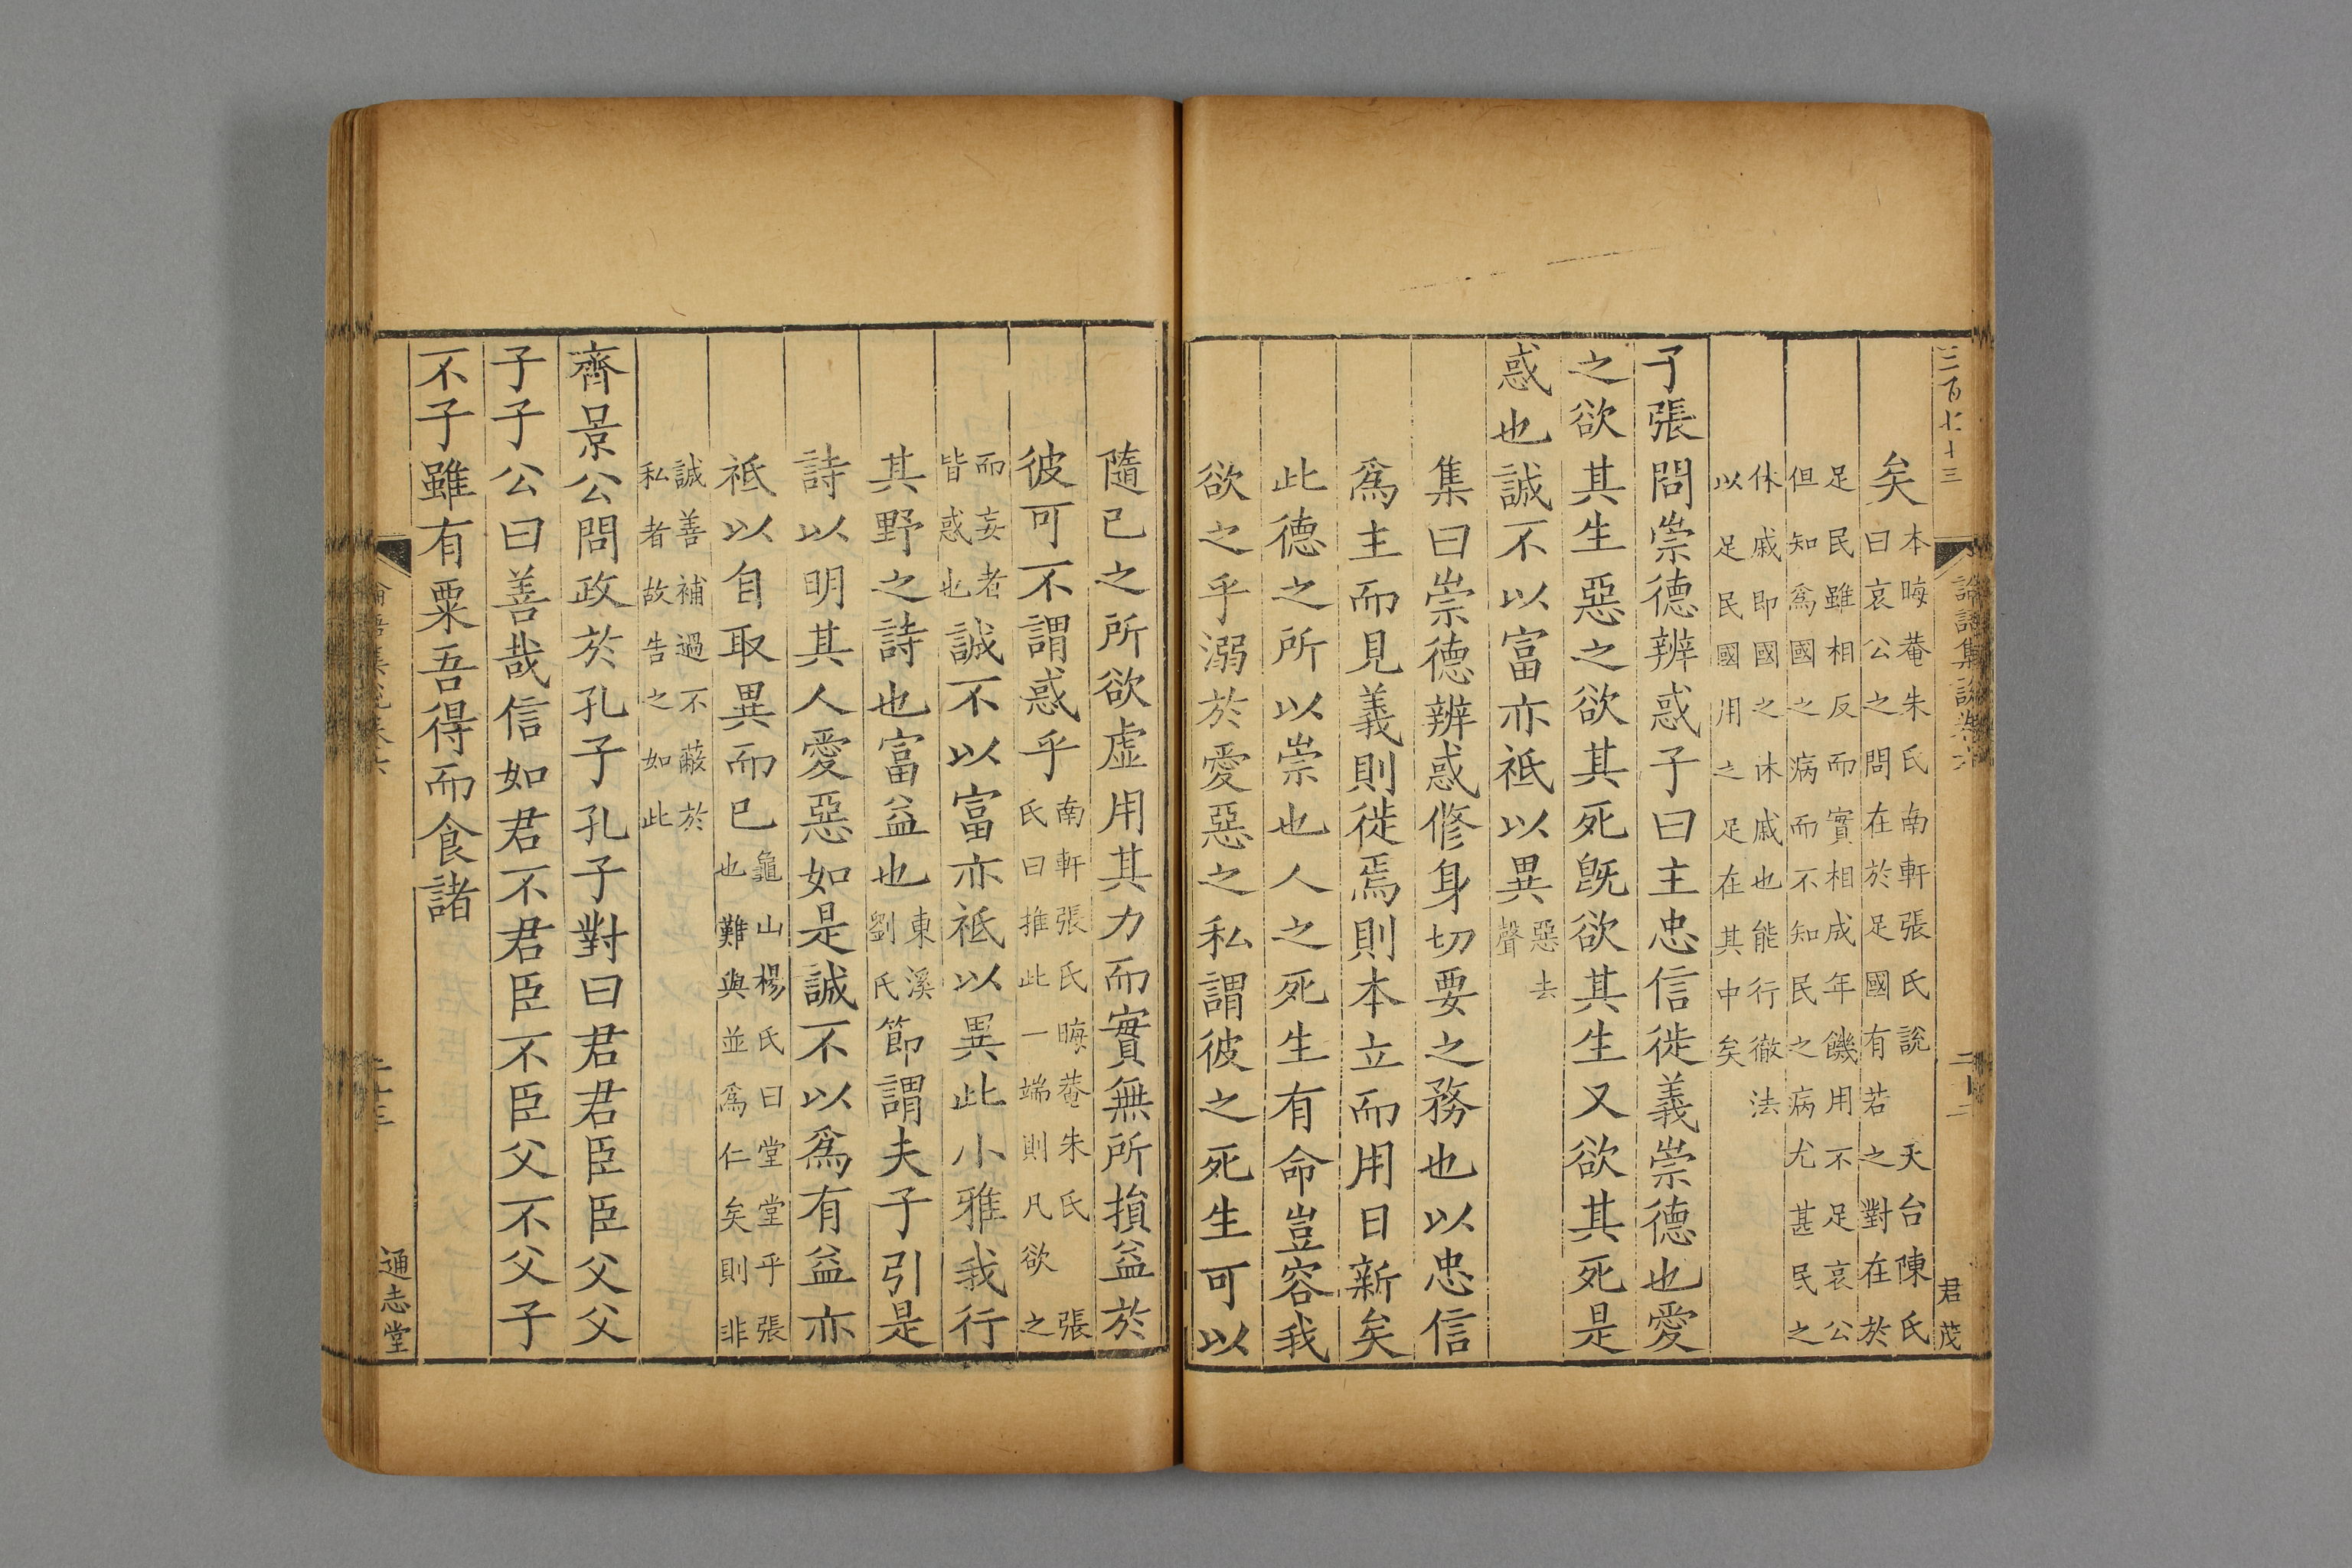 三百七十三
論語集說卷六
二十二
君茂
矣本晦菴朱氏南軒張氏說 天台陳氏曰哀公之問在於足國有若之對在於
足民雖相反而實相成年饑用不足哀公但知爲國之病而不知民之病尤甚民之
休戚即國之休戚也能行徹法以足民國用之足在其中矣
子張問崇德辨惑子曰主忠信徙義崇德也愛
之欲其生惡之欲其死旣欲其生又欲其死是
惑也誠不以富亦祗以異惡去聲
集曰崇德辨惑修身切要之務也以忠信
爲主而見義則徙焉則本立而用日新矣
此德之所以崇也人之死生有命豈容我
欲之乎溺於愛惡之私謂彼之死生可以
隨已之所欲虛用其力而實無所損益於
彼可不謂惑乎南軒張氏晦菴朱氏 張氏曰推此一端則凡欲之
而妄者皆惑也誠不以富亦祗以異此小雅我行
其野之詩也富益也東溪劉氏節謂夫子引是
詩以明其人愛惡如是誠不以爲有益亦
祗以自取異而已龜山楊氏曰堂堂乎張也難與並爲仁矣則非
誠善補過不蔽於私者故告之如此
齊景公問政於孔子孔子對曰君君臣臣父父
子子公曰善哉信如君不君臣不臣父不父子
不子雖有粟吾得而食諸
論語集說卷六
二十三
通志堂